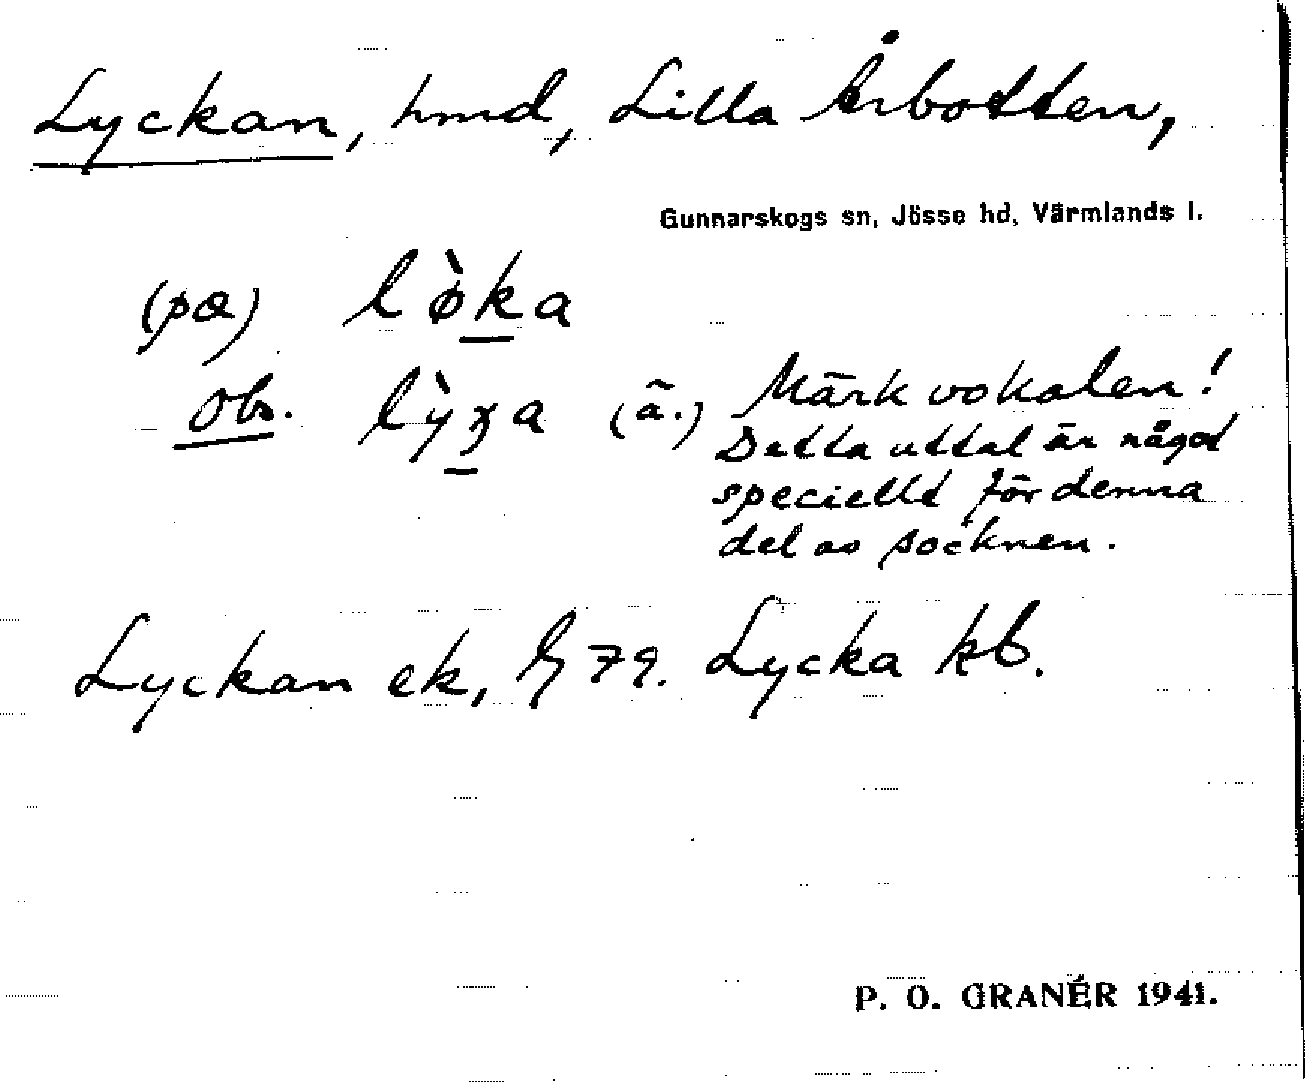 Lyckan, hmd, Lilla Årbotten,
Gunnarskogs sn, Jösse hd, Värmlands l.
(pɑ) lø̀ka
Obs. lỳʒa (ä.) Märk vokalen!
Detta uttal är något
speciellt för denna
del av socknen.
Lyckan ek, 79. Lycka kb.
P. O. GRANÉR 1941.